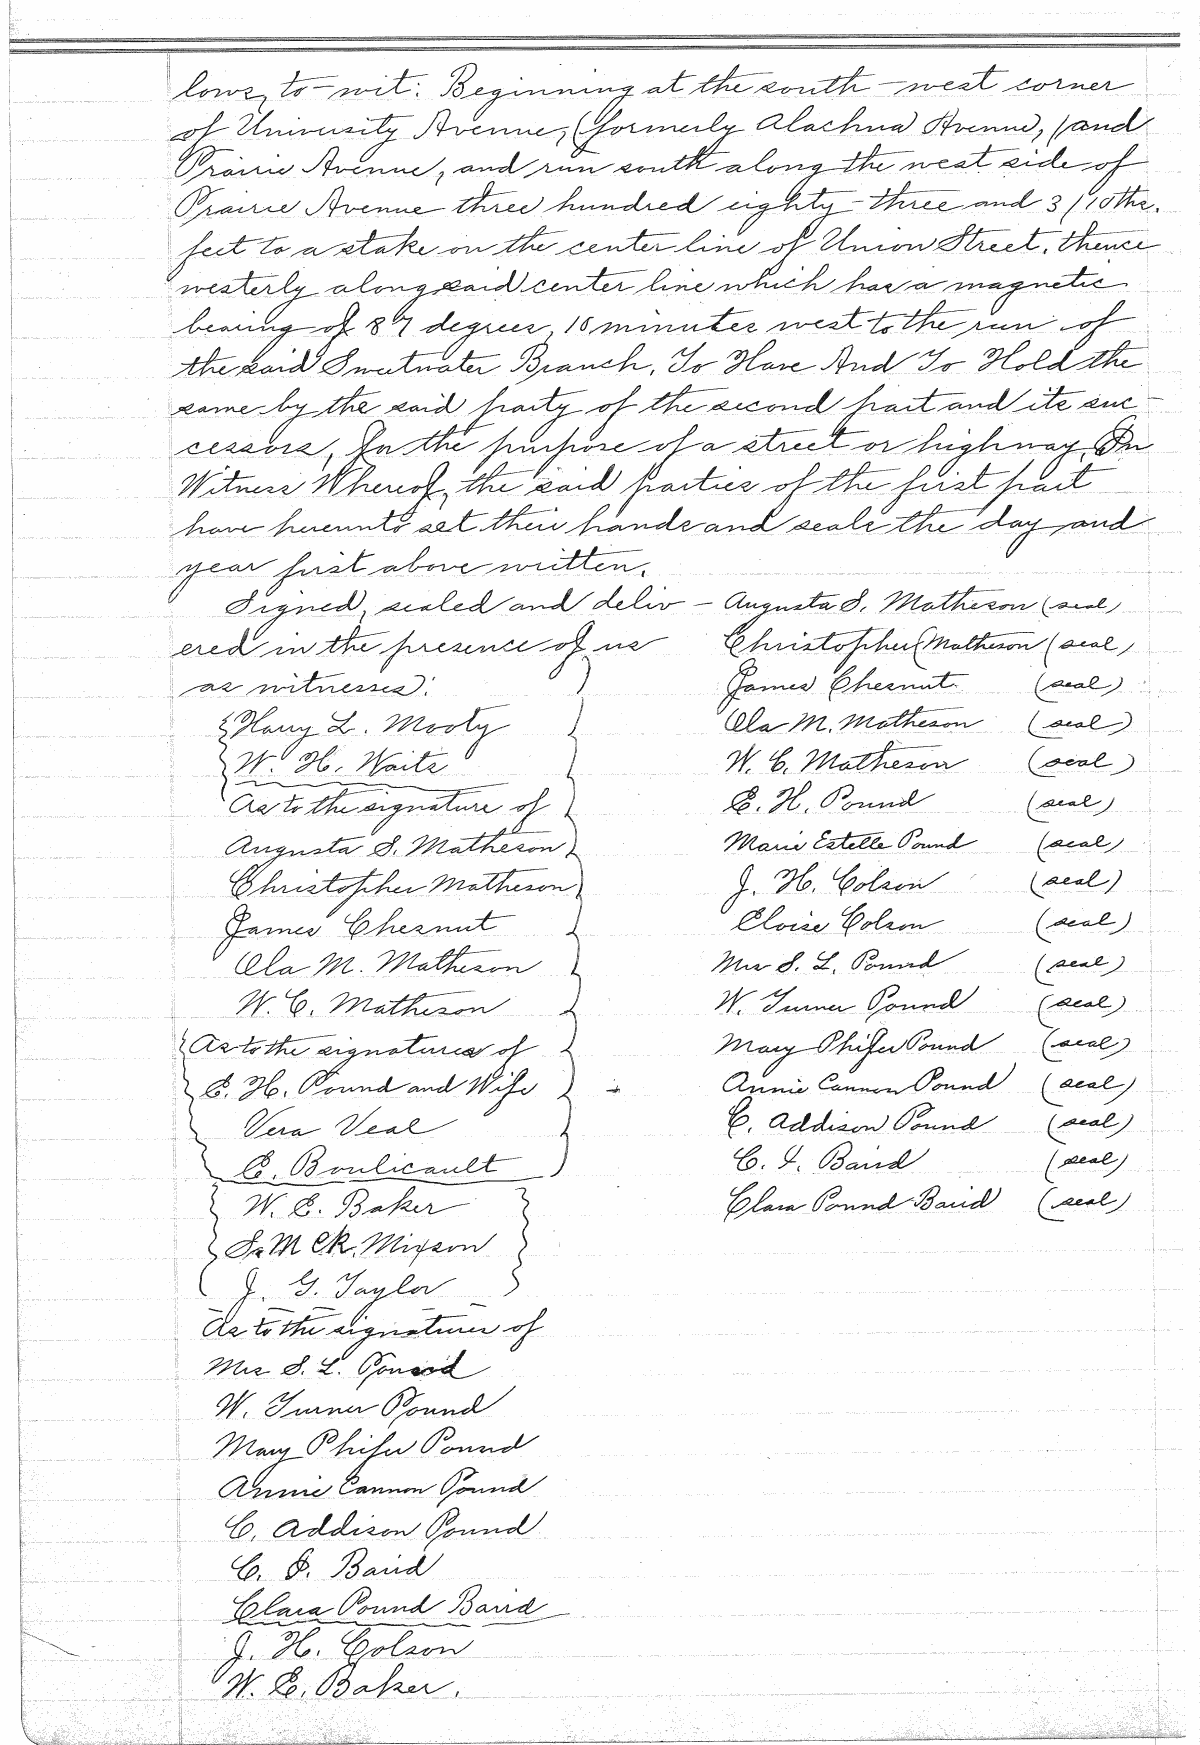 lows, to-wit: Beginning at the south-west corner
of University Avenue, (formerly Alachua Avenue,) and
Prairie Avenue, and run south along the west side of
Prairie Avenue three hundred eighty-three and 3/10ths.
feet to a stake on the center line of Union Street, thence
westerly along said center line which has a magnetic
bearing of 87 degrees, 10 minutes west to the run of
the said Sweetwater Branch. To Have And To Hold the
same by the said party of the second part and its suc-
cessors, for the purpose of a street or highway. In
Witness Whereof, the said parties of the first part
have hereunto set their hands and seals the day and
year first above written.
Signed, sealed and deliv-
ered in the presence of us
as witnesses:
Harry L. Mooty
W. H. Waits
As to the signature of
Augusta S. Matheson
Christopher Matheson
James Chesnut
Ola M. Matheson
W. C. Matheson
As to the signatures of
E. H. Pound and Wife
Vera Veal
E. Boulicault
W. E. Baker
Mixson
J. G. Taylor
As to the signatures of
Mrs S. L. Pound
W. Turner Pound
Mary Phifer Pound
Annie Cannon Pound
C. Addison Pound
C. I. Baird
Clara Pound Baird
J. H. Colson
W. E. Baker.
Augusta S. Matheson (seal)
Christopher Matheson (seal)
James Chesnut (seal)
Ola M. Matheson (seal)
W. C. Matheson (seal)
E. H. Pound (seal)
Marie Estelle Pound (seal)
J. H. Colson (seal)
Eloise Colson (seal)
Mrs S. L. Pound (seal)
W. Turner Pound (seal)
Mary Phifer Pound (seal)
Annie Cannon Pound (seal)
C. Addison Pound (seal)
C. I. Baird (seal)
Clara Pound Baird (seal)